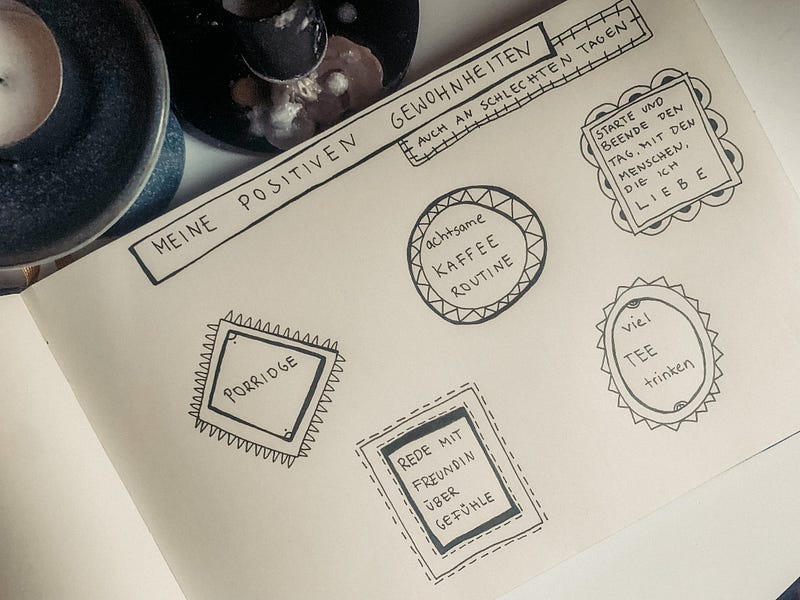 MEINE POSITIVEN GEWOHNHEITEN
AUCH AN SCHLECHTEN TAGEN
STARTE UND
BEENDE DEN
TAG, MIT DEN
MENSCHEN,
DIE ICH
LIEBE
achtsame
KAFFEE
ROUTINE
PORRIDGE
viel
TEE
trinken
REDE MIT
FREUNDIN
ÜBER
GEFÜHLE